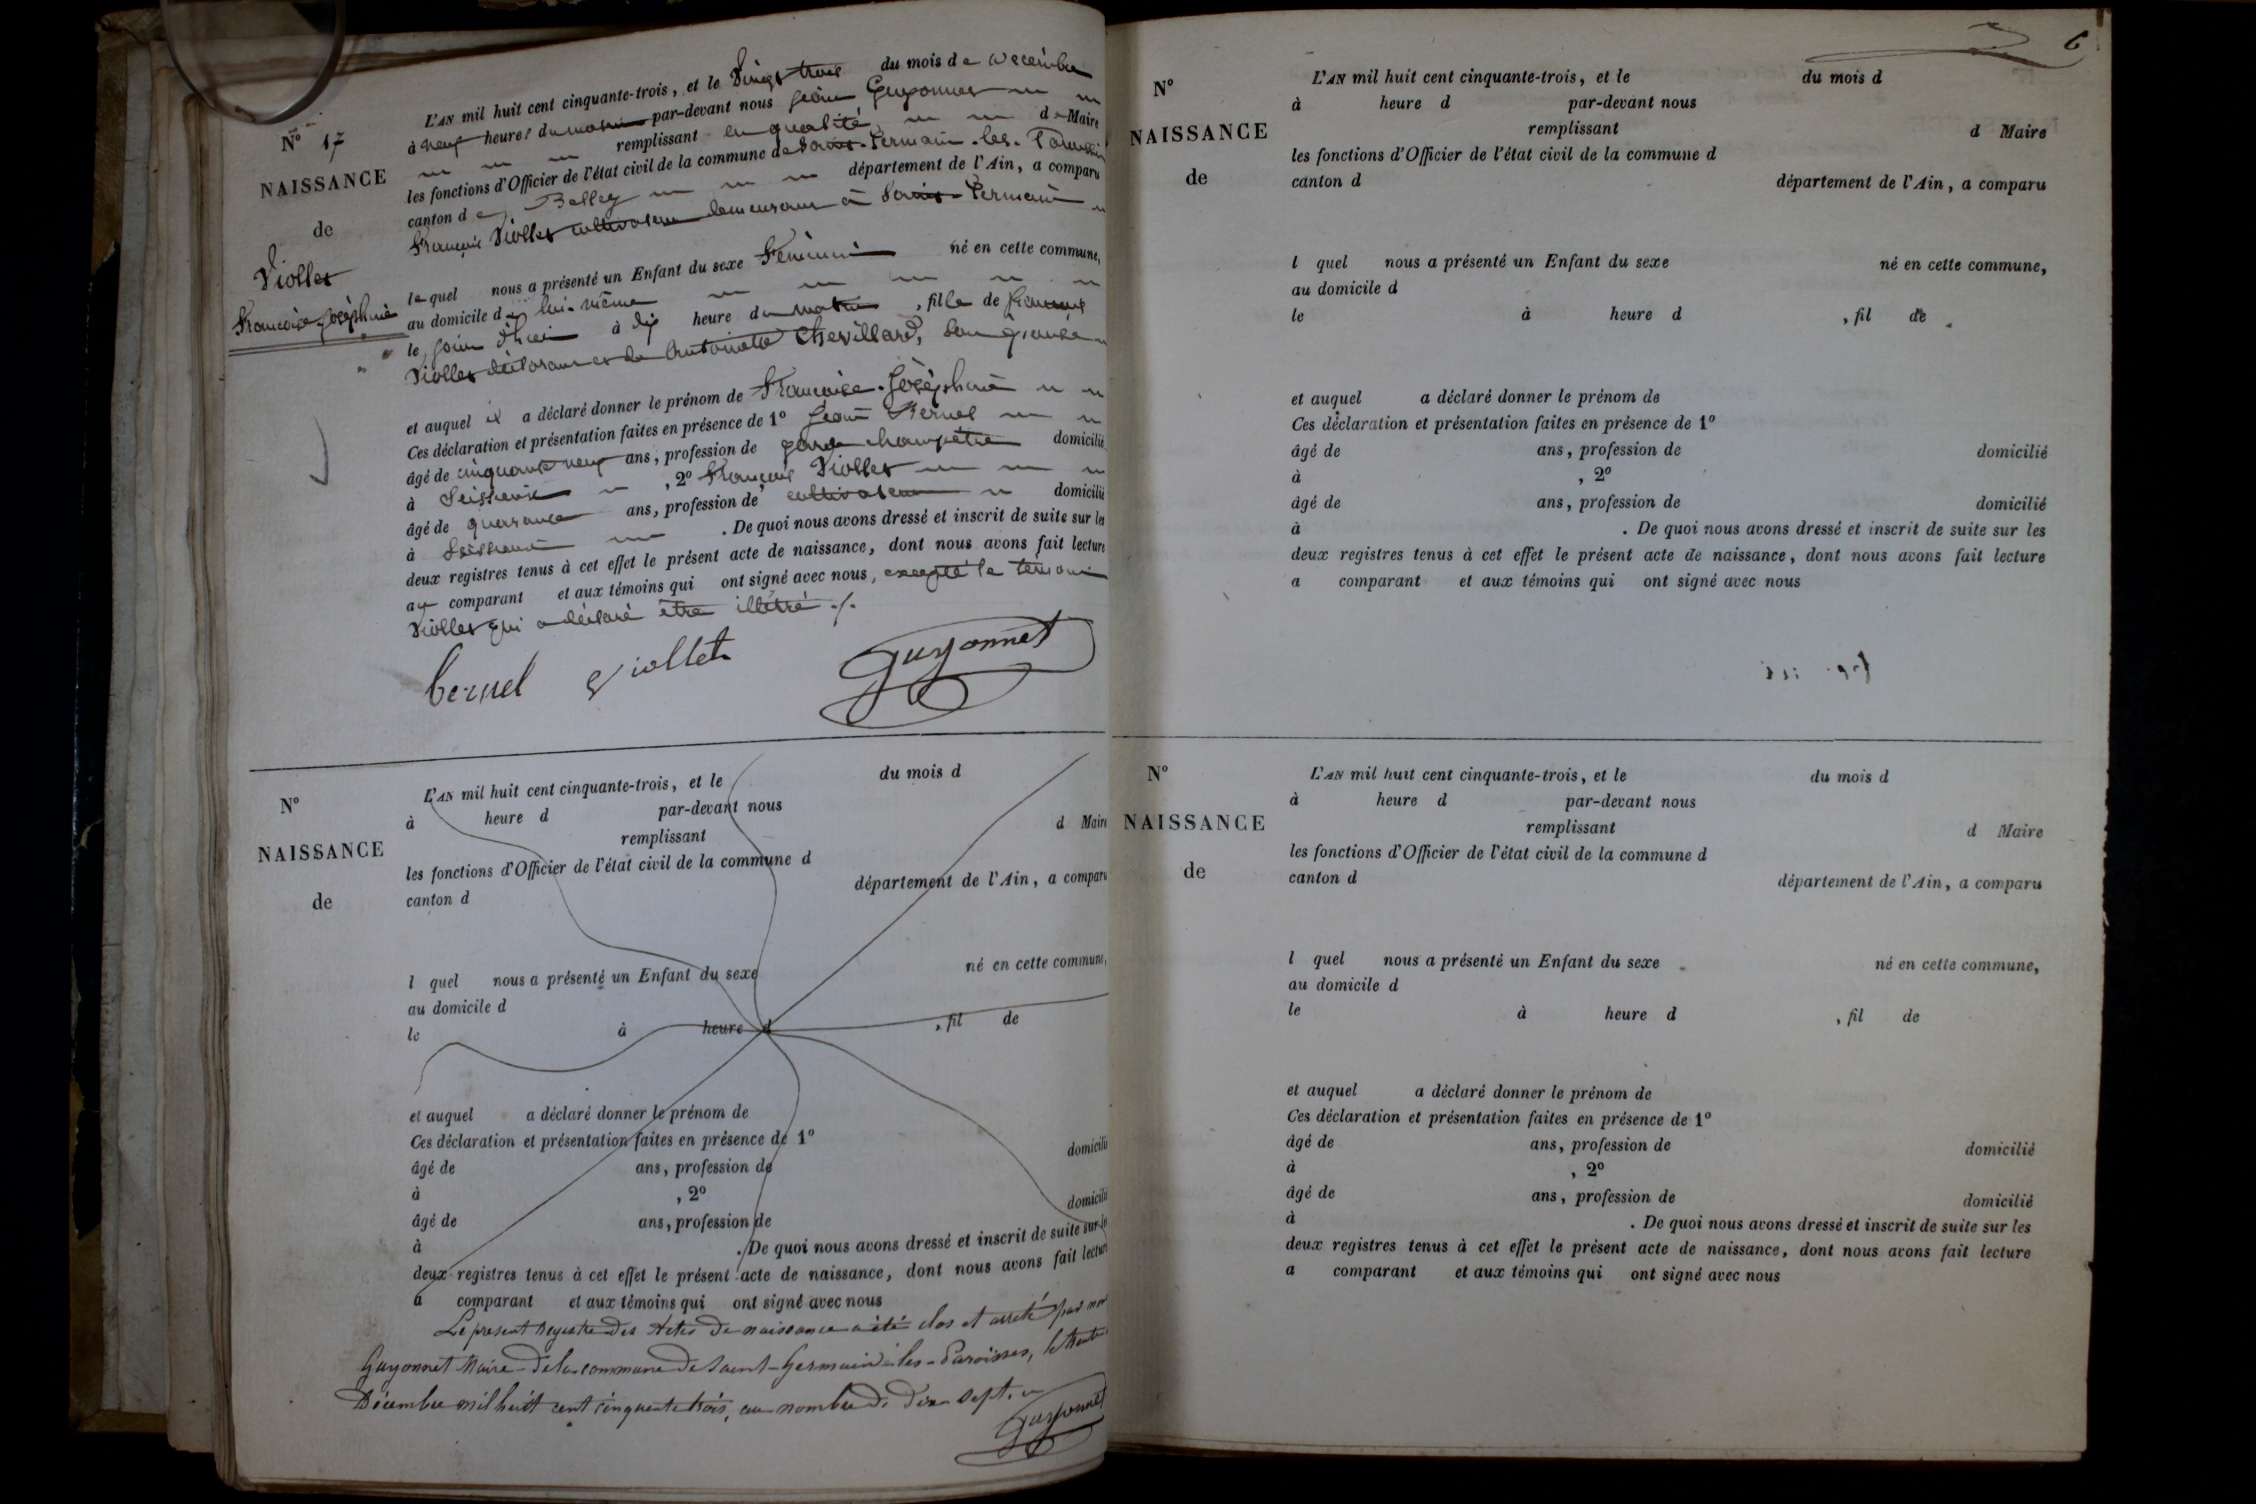 N° 17
NAISSANCE
de
Viollet
Françoise-Joséphine
L'AN mil huit cent cinquante-trois, et le Vingt trois du mois de Décembre
à neuf heures du matin par-devant nous Jean Guyonnet
remplissant en qualité de Maire
les fonctions d'Officier de l'état civil de la commune de Saint-Germain-les-Paroisses
canton de Belley département de l'Ain, a comparu
François Viollet cultivateur demeurant à Saint-Germain
lequel nous a présenté un Enfant du sexe Féminin né en cette commune,
au domicile de lui-même
le jour d'hier à dix heure du matin, fille de François
Viollet déclarant et de Antoinette Chevillard, son épouse
et auquel il a déclaré donner le prénom de Françoise-Joséphine
Ces déclaration et présentation faites en présence de 1° Jean Bernel
âgé de cinquante neuf ans, profession de garde champêtre domicilié
à , 2° François Viollet
âgé de quarante ans, profession de cultivateur domicilié
à . De quoi nous avons dressé et inscrit de suite sur les
deux registres tenus à cet effet le présent acte de naissance, dont nous avons fait lecture
au comparant et aux témoins qui ont signé avec nous, excepté le témoin
Viollet qui a déclaré être illétré ./.
bernel viollet guyonnet
N°
NAISSANCE
de
L'AN mil huit cent cinquante-trois, et le du mois d
à heure d par-devant nous
remplissant d Maire
les fonctions d'Officier de l'état civil de la commune d
canton d département de l'Ain, a comparu
l quel nous a présenté un Enfant du sexe né en cette commune,
au domicile d
le à heure d , fil de
et auquel a déclaré donner le prénom de
Ces déclaration et présentation faites en présence de 1°
âgé de ans, profession de domicilié
à , 2°
âgé de ans, profession de domicilié
à . De quoi nous avons dressé et inscrit de suite sur le
deux registres tenus à cet effet le présent acte de naissance, dont nous avons fait lecture
a comparant et aux témoins qui ont signé avec nous
Le présent Registre des Actes de naissance a été clos et arreté par nous
Guyonnet Maire de la commune de Saint-Germain-les-Paroisses, le trente
Décembre mil huit cent cinquante trois, au nombre de Dix sept.
guyonnet
6
N°
NAISSANCE
de
L'AN mil huit cent cinquante-trois, et le du mois d
à heure d par-devant nous
remplissant d Maire
les fonctions d'Officier de l'état civil de la commune d
canton d département de l'Ain, a comparu
l quel nous a présenté un Enfant du sexe né en cette commune,
au domicile d
le à heure d , fil de
et auquel a déclaré donner le prénom de
Ces déclaration et présentation faites en présence de 1°
âgé de ans, profession de domicilié
à , 2°
âgé de ans, profession de domicilié
à . De quoi nous avons dressé et inscrit de suite sur les
deux registres tenus à cet effet le présent acte de naissance, dont nous avons fait lecture
a comparant et aux témoins qui ont signé avec nous
N°
NAISSANCE
de
L'AN mil huit cent cinquante-trois, et le du mois d
à heure d par-devant nous
remplissant d Maire
les fonctions d'Officier de l'état civil de la commune d
canton d département de l'Ain, a comparu
l quel nous a présenté un Enfant du sexe né en cette commune,
au domicile d
le à heure d , fil de
et auquel a déclaré donner le prénom de
Ces déclaration et présentation faites en présence de 1°
âgé de ans, profession de domicilié
à , 2°
âgé de ans, profession de domicilié
à . De quoi nous avons dressé et inscrit de suite sur les
deux registres tenus à cet effet le présent acte de naissance, dont nous avons fait lecture
a comparant et aux témoins qui ont signé avec nous